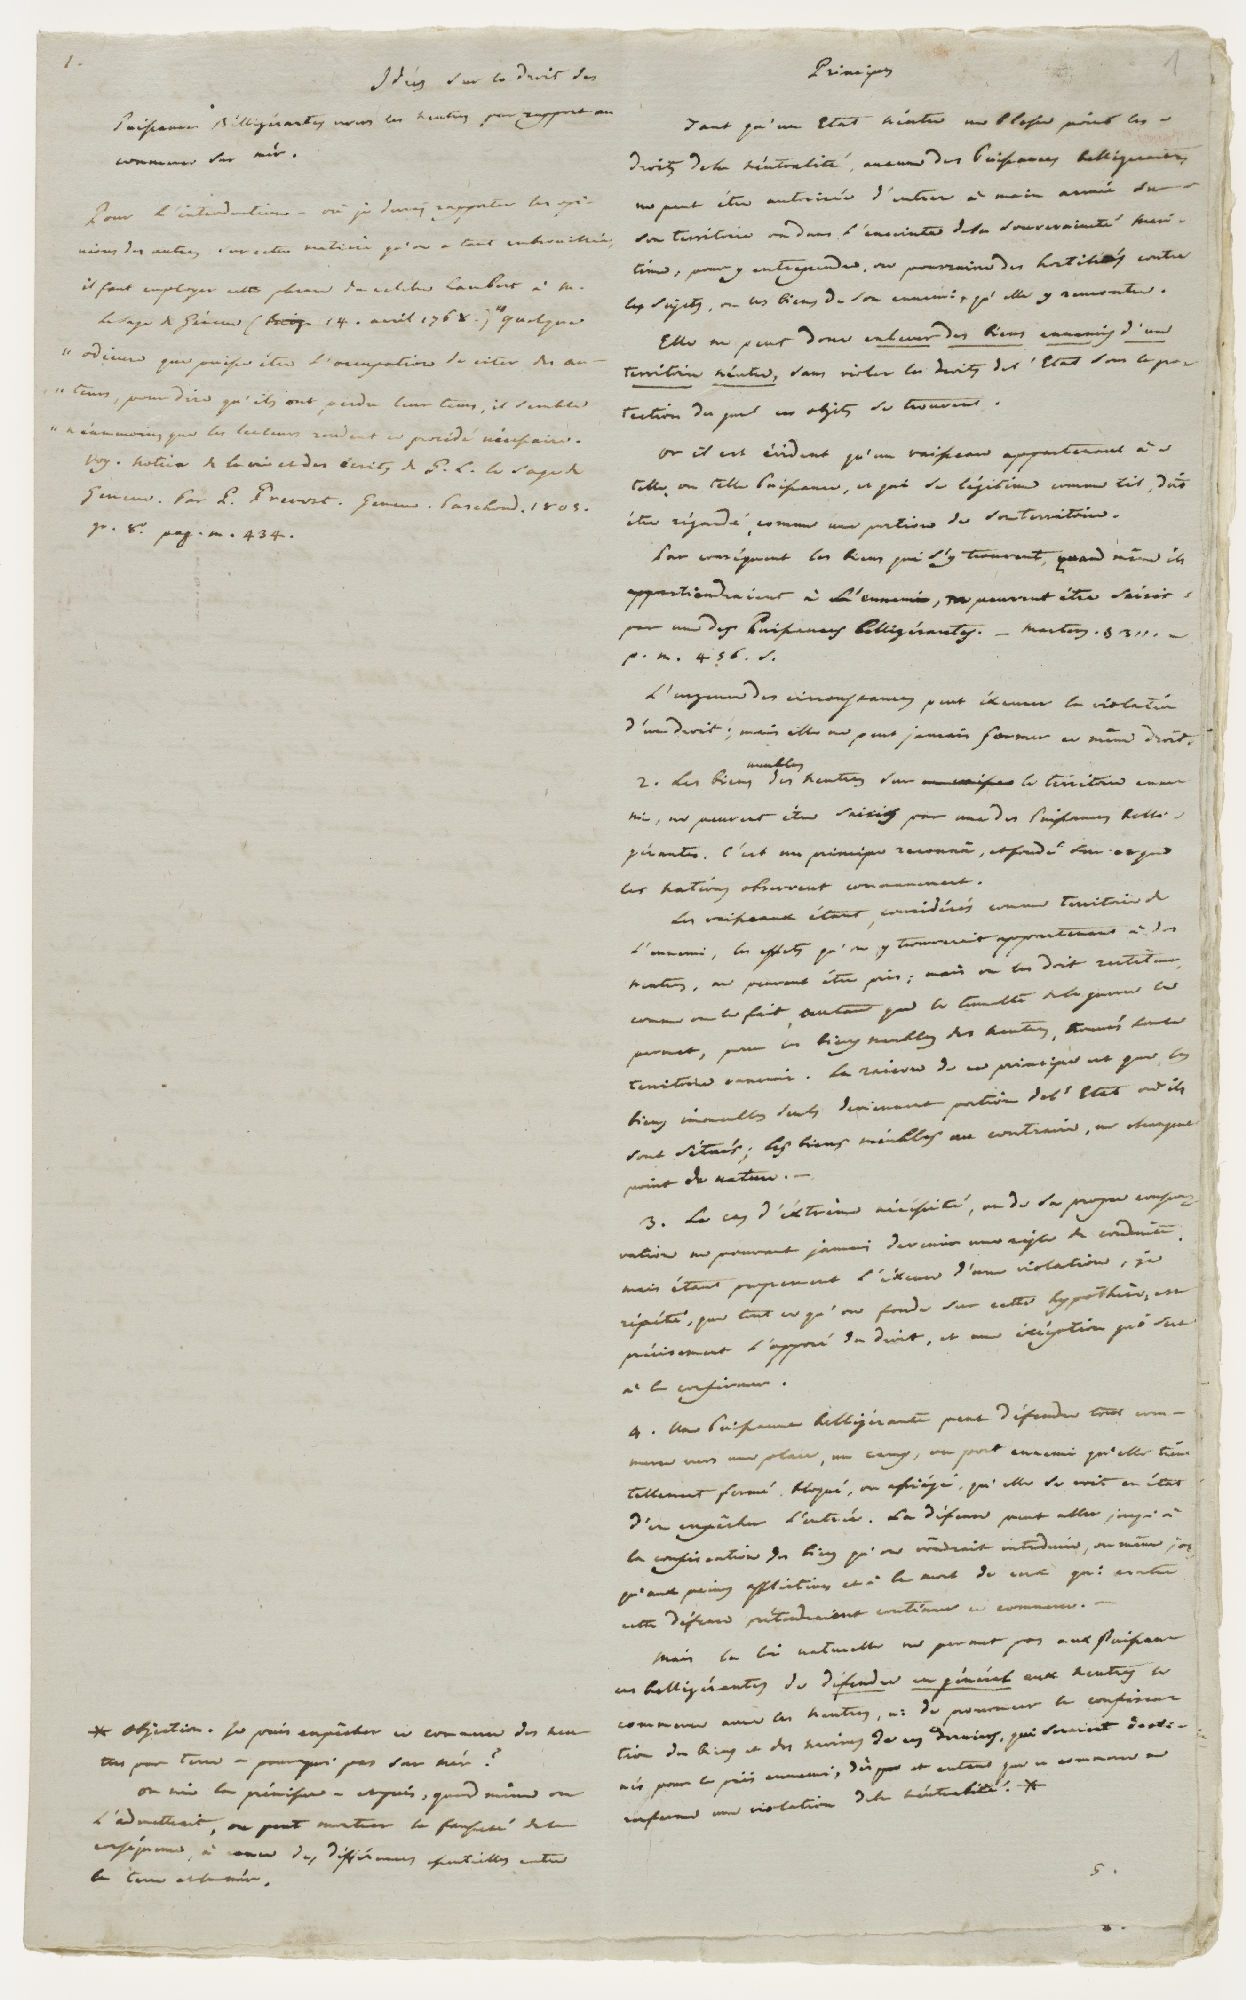 1.
Idées sur le droit des
Puissances Belligérantes envers les neutres par rapport au
commerce sur mèr.
Pour l'introduction – où je devrai rapporter les opi-
nions des autres sur cette matière qu'on a tant embrouillée,
il faut employer cette phrase du celebre Lambert à M.
le Sage de Genève ( 14. avril 1768.) "quelque
" odieuse que puisse être l'occupation de citer des au-
" teurs, pour dire qu'ils ont perdu leur tems, il semble
" néanmoins que les lecteurs rendent ce procédé nécessaire.
Voy. Notice de la vie et des écrits de G. L. le Sage de
Genève. Par P. Prevost. Geneve. Paschoud. 1805.
gr. 8.° pag. m. 434.
* Objection. Je puis empêcher ce commerce des neu-
tres par terre – pourquoi pas sur mèr?
On nie la prémisse – et puis, quand même on
l'admettrait, on peut montrer la fausseté de la
conséquence, à cause des différences essentielles entre
la terre et la mèr.
1
Principes
Tant qu'un Etat neutre ne blesse point les
droits de la néutralité, aucune des Puissances belligerantes
ne peut être autorisée d'entrer à main armée sur
son territoire ou dans l'enceinte de sa souveraineté mari-
time, pour y entreprendre, ou poursuivre des hostilités contre
les sujets, ou les biens de son ennemi, qu'elle y rencontre.
Elle ne peut donc enlever des biens ennemis d'un
territoire néutre, sans violer les droits de l'Etat sous la pro-
tection du quel ces objets se trouvent.
Or il est évident qu'un vaisseau appartenant à
telle, ou telle Puissance, et qui se légitime comme tel, doit
être régardé, comme une portion de son territoire.
Par conséquent les biens qui s'y trouvent, quand même ils
appartiendraient à l'ennemi, ne peuvent être saisis
par une des Puissances belligérantes. – Martens. § 311.
p. m. 456. s.
L'urgence des circonstances peut éxcuser la violation
d'un droit; mais elle ne peut jamais former ce même droit.
2. Les biens meubles des neutres sur le territoire enne-
mi, ne peuvent être saisis par une des Puissances belli-
gérantes. C'est un principe reconnû, et fondé sur ce que
les nations observent communement.
Les vaisseaux étant considérés comme territoire de
l'ennemi, les effets qu'on y trouverait appartenant à des
neutres, ne peuvent être pris; mais on les doit restituer,
comme on le fait, autant que le tumulte de la guerre le
permet, pour les biens meubles des neutres, trouvés sur le
territoire ennemi. La raison de ce principe est que les
biens immeubles seuls deviennent portion de l'Etat où ils
sont situés; les biens méubles au contraire, ne changent
point de nature. –
3. Le cas d'éxtrême nécéssité, ou de sa propre conser-
vation ne pouvant jamais devenir une règle de conduite,
mais étant purement l'éxcuse d'une violation, je
répéte, que tout ce qu'on fonde sur cette hypothèse, est
précisement l'opposé du droit, et une éxception qui sert
à le confirmer.
4. Une Puissance belligérante peut défendre tout com-
merce vers une place, un camp, un port ennemi qu'elle tient
tellement fermé, bloqué, ou assiégé, qu'elle se voit en état
d'en empêcher l'entrée. La défense peut aller jusqu'à
la confiscation des biens qu'on voudrait introduire, ou même jus-
qu'aux peines afflictives et à la mort de ceux qui contre
cette défense prétendraient continuer ce commerce. –
Mais la loi naturelle ne permet pas aux Puissan-
ces belligérantes de défendre en général aux neutres le
commerce avec les neutres, ni de prononcer la confisca-
tion des biens et des navires de ces derniers, qui seraient desti-
nés pour le païs ennemi, dès que et autant que ce commerce ne
renferme une violation de la néutralité. *
5.